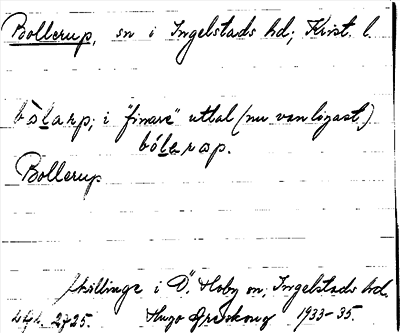 Bollerup, sn i Ingelstads hd, Krist. l.
bòlarp; i "finare" uttal (nu vanligast)
bólerop.
Bollerup
skillinge i Ö. Hoby sn, Ingelstads hd.
2725. Hugo Areskoug 1933-35.